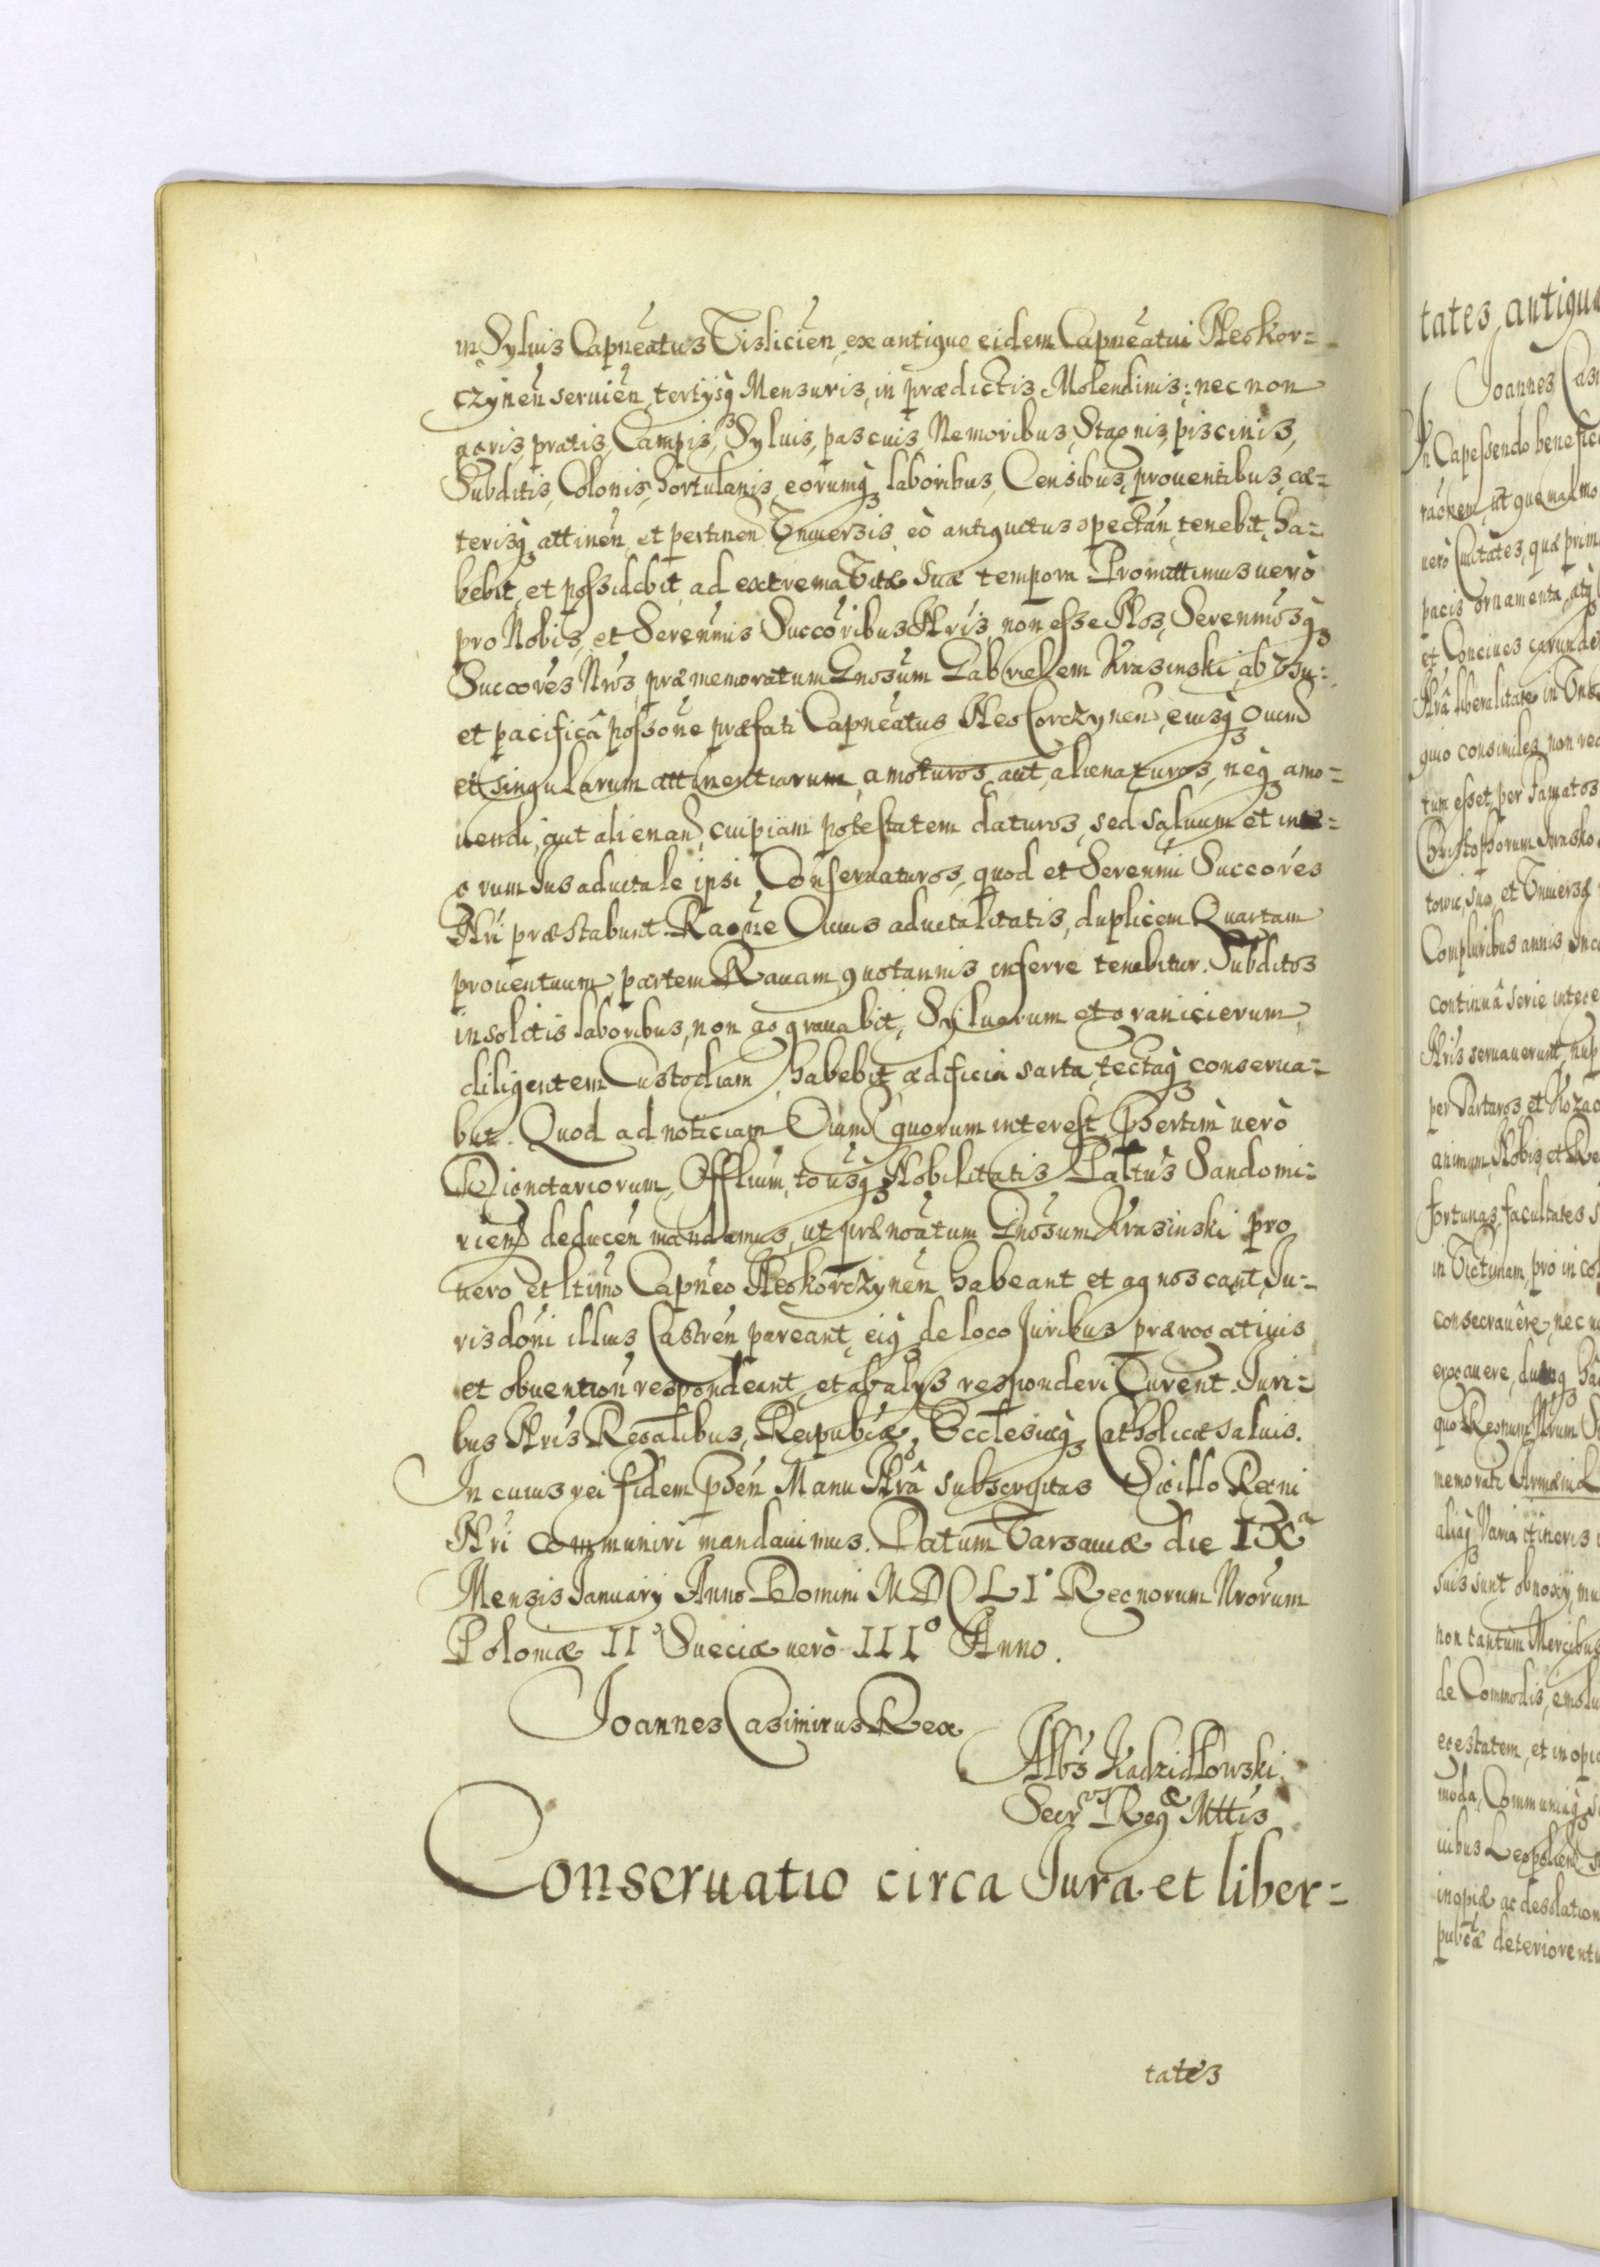 in Syluis Capneatus Vislicien, ex antiquo eidem Capneatui Neokor=
czynen seruien, tertijsq Mensuris, in prædictis Molendinis; nec non
agris, pratis, Campis, Syluis, pascuis, Nemoribus, Stagnis, piscinis,
Subditis, Colonis, hortulanis, eorumq laboribus, Censibus, prouentibus, cæ=
terisq attinen, et pertinen Vniuersis, eò antiquitus spectan, tenebit, ha=
bebit, et possidebit, ad extrema Vitæ suæ tempora Promittimus uerò
pro Nobis, et Serennis Succoribus Nris, non esse Nos, Serennosq
Succores Nros, præmemoratum Gnosum Gabrielem Krasinski, ab Vsu=
et pacificâ possone præfati Capneatus Neo Corczynen, eiusq Ouium
et singularum attinentiarum, amoturos, aut alienaturos, neq amo=
uendi, aut alienand, cuipiam potestatem daturos, sed saluum et inte=
grum Jus aduitale ipsi Conseruaturos, quod et Serenmi Succores
Nri præstabunt Raone Ouius aduitalitatis, duplicem Quartam
prouentuum partem Rauam quotannis inferre tenebitur. Subditos
insolitis laboribus, non aggrauabit, Syluarum et granicierum
diligentem Custodiam habebit, ædificia sarta, tectaq conserua=
bit. Quod ad noticiam Oium quorum interest, Psertim uerò
Dignitariorum, Offlium, totiusq Nobilitatis Pallatus Sandomi=
rien deducen mandamus, ut prænoatum Gnosum Krasinski pro
uero et ltimo Capneo Neokorczynen habeant et agnoscant, Ju=
risdoni illius Castren pareant, eiq de loco Juribus prærogatiuis
et obuention respondeant, et ab alijs responderi Curent. Juri=
bus Nris Regalibus, Reipublcæ, Ecclesiæq Catholicæ saluis.
In cuius rei fidem psen Manu Nrâ subscriptas Sigillo Regni
Nri communiri mandauimus. Datum Varsauiæ die IXa
Mensis January Anno Domini MDCLIo Regnorum Nrorum
Poloniæ IIo Sueciæ uerò IIIo Anno.
Joannes Casimirus Rex
Albs Kadzidlowski
Secrs Regæ Mttis
Conseruatio circa Jura et liber=
tates
tates, antiqua
Joannes Casi
In Capessendo benefic
uerò Ciuitates, quæ prim
pacis ornamenta, atq
Nrâ liberalitate in
quo consimiles non
tum esset, per Famatos
Compluribus annis, Inco
continuâ serie
Nris seruauerunt, nup
per Tartaros, et Kozac
animum, Nobis, et Re
fortunas, facultates
in Victimam, pro in
consecrauêre, nec
quo Regnum Nrum
memorati Armeni
suis sunt obnoxij, mu
non tantùm Mercibus
de Commodis, emolu
egestatem, et inopia
inopiæ ac desolation
publcâ deteriorentu